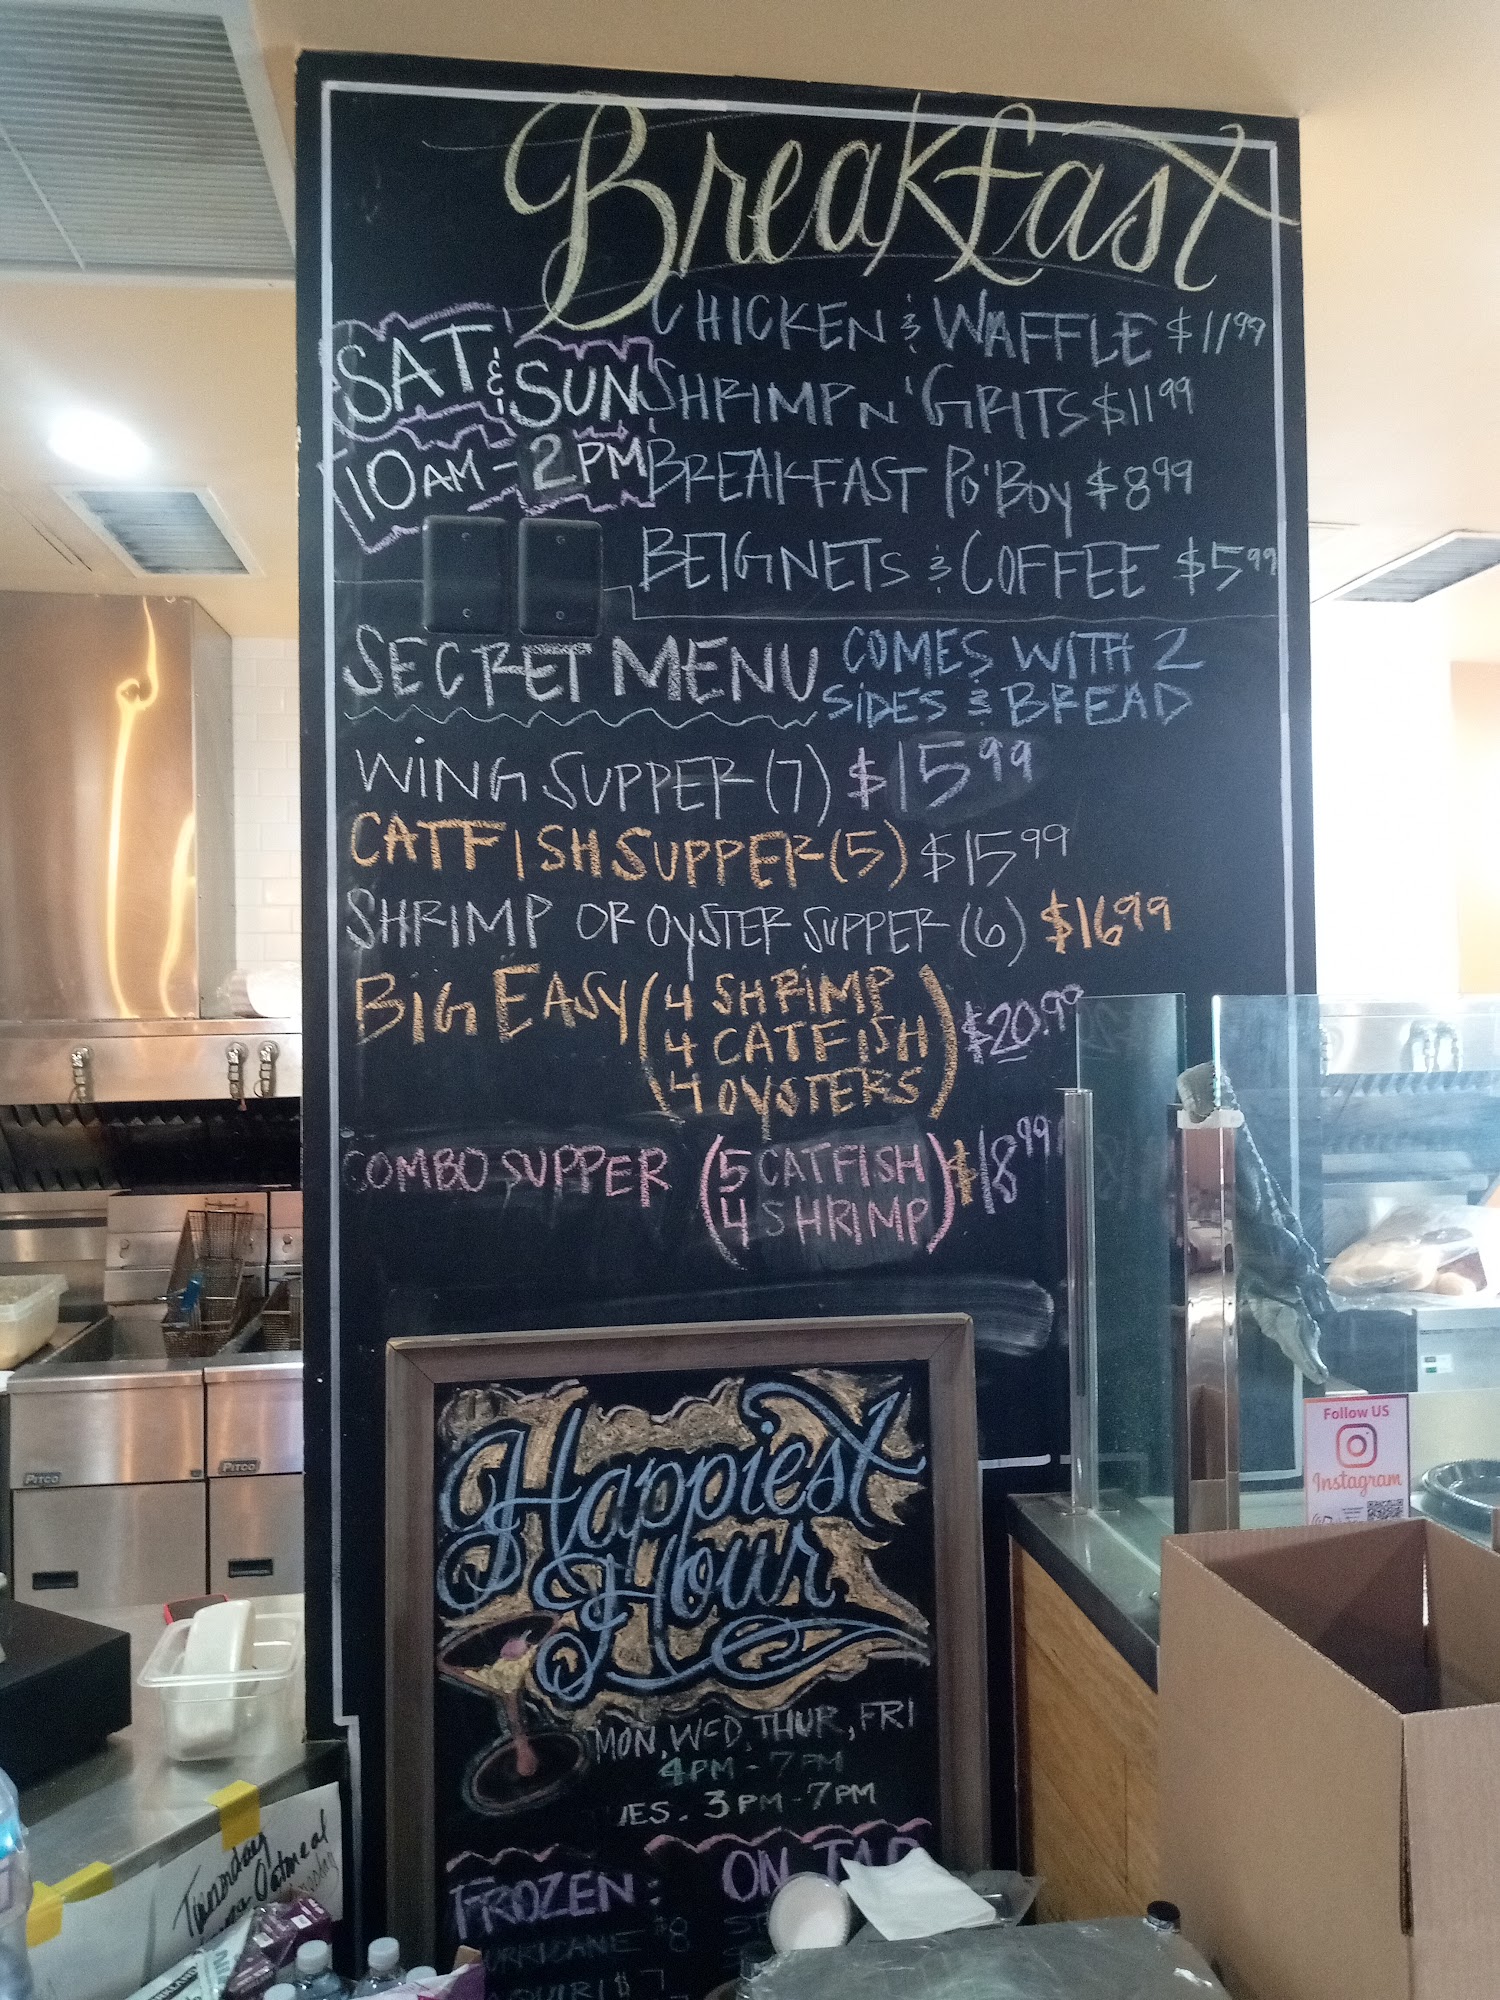 Breakfast
SAT & SUN
10AM - 2PM
CHICKEN & WAFFLE $11.99
SHRIMP N' GRITS $11.99
BREAKFAST PO'BOY $8.99
BEIGNETS & COFFEE $5.99
SECRET MENU
COMES WITH 2
SIDES & BREAD
WING SUPPER (7) $15.99
CATFISH SUPPER (5) $15.99
SHRIMP OR OYSTER SUPPER (6) $16.99
BIG EASY (4 SHRIMP
4 CATFISH
4 OYSTERS) $20.99
COMBO SUPPER (5 CATFISH
4 SHRIMP) $18.99
Happiest
Hour
MON, WED, THUR, FRI
4PM - 7PM
UES. 3PM-7PM
FROZEN:
ON TAP
HURRICANE $8
DAIQUIRI $7
Follow US
Instagram
PITCO
PITCO
Oatmeal